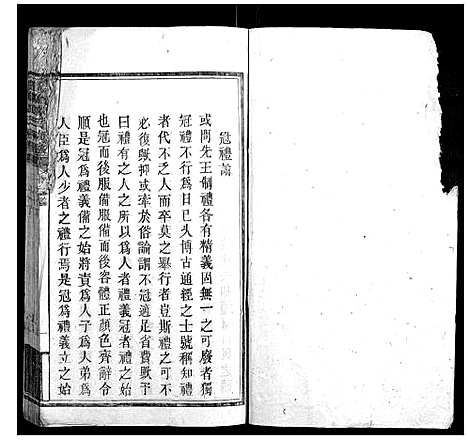 冠禮論
或問先王制禮各有精義固無一之可廢者獨
冠禮不行為日已久博古通經之士號稱知禮
者代不乏人而卒莫之舉行者豈斯禮之不可
必復歟抑或牽於俗論謂不冠適是省費歟予
曰禮有之人之所以為人者禮義冠者禮之始
也冠而後服備服備而後容體正顏色齊辭令
順是冠為禮義備之始將責為人子為人弟為
人臣為人少者之禮行焉是冠為禮義立之始